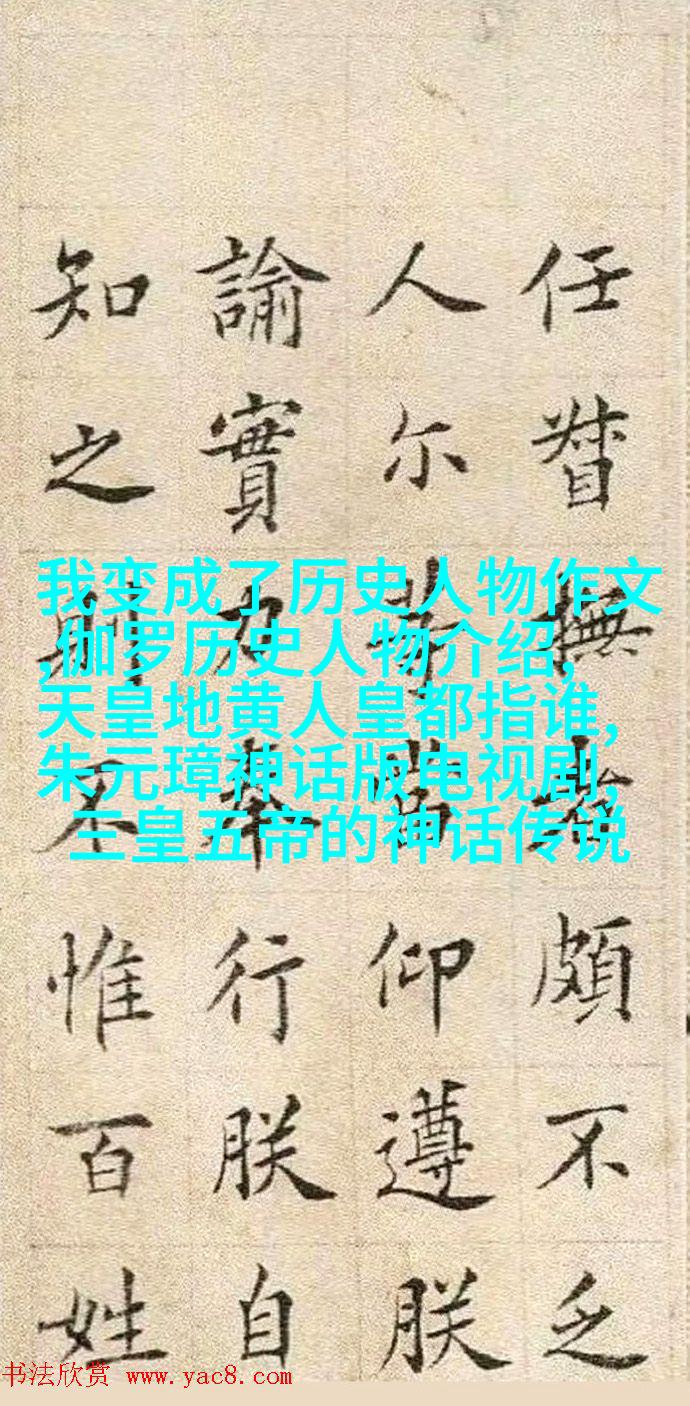 任督撫者頗不乏
人尔等當仰遵朕
諭實力奉行朕自
知之則不惟百姓
我变成了历史人物作文
,伽罗历史人物介绍,
天皇地黄人皇都指谁,
朱元璋神话版电视剧,
三皇五帝的神话传说
书法欣赏 www.yac8.com